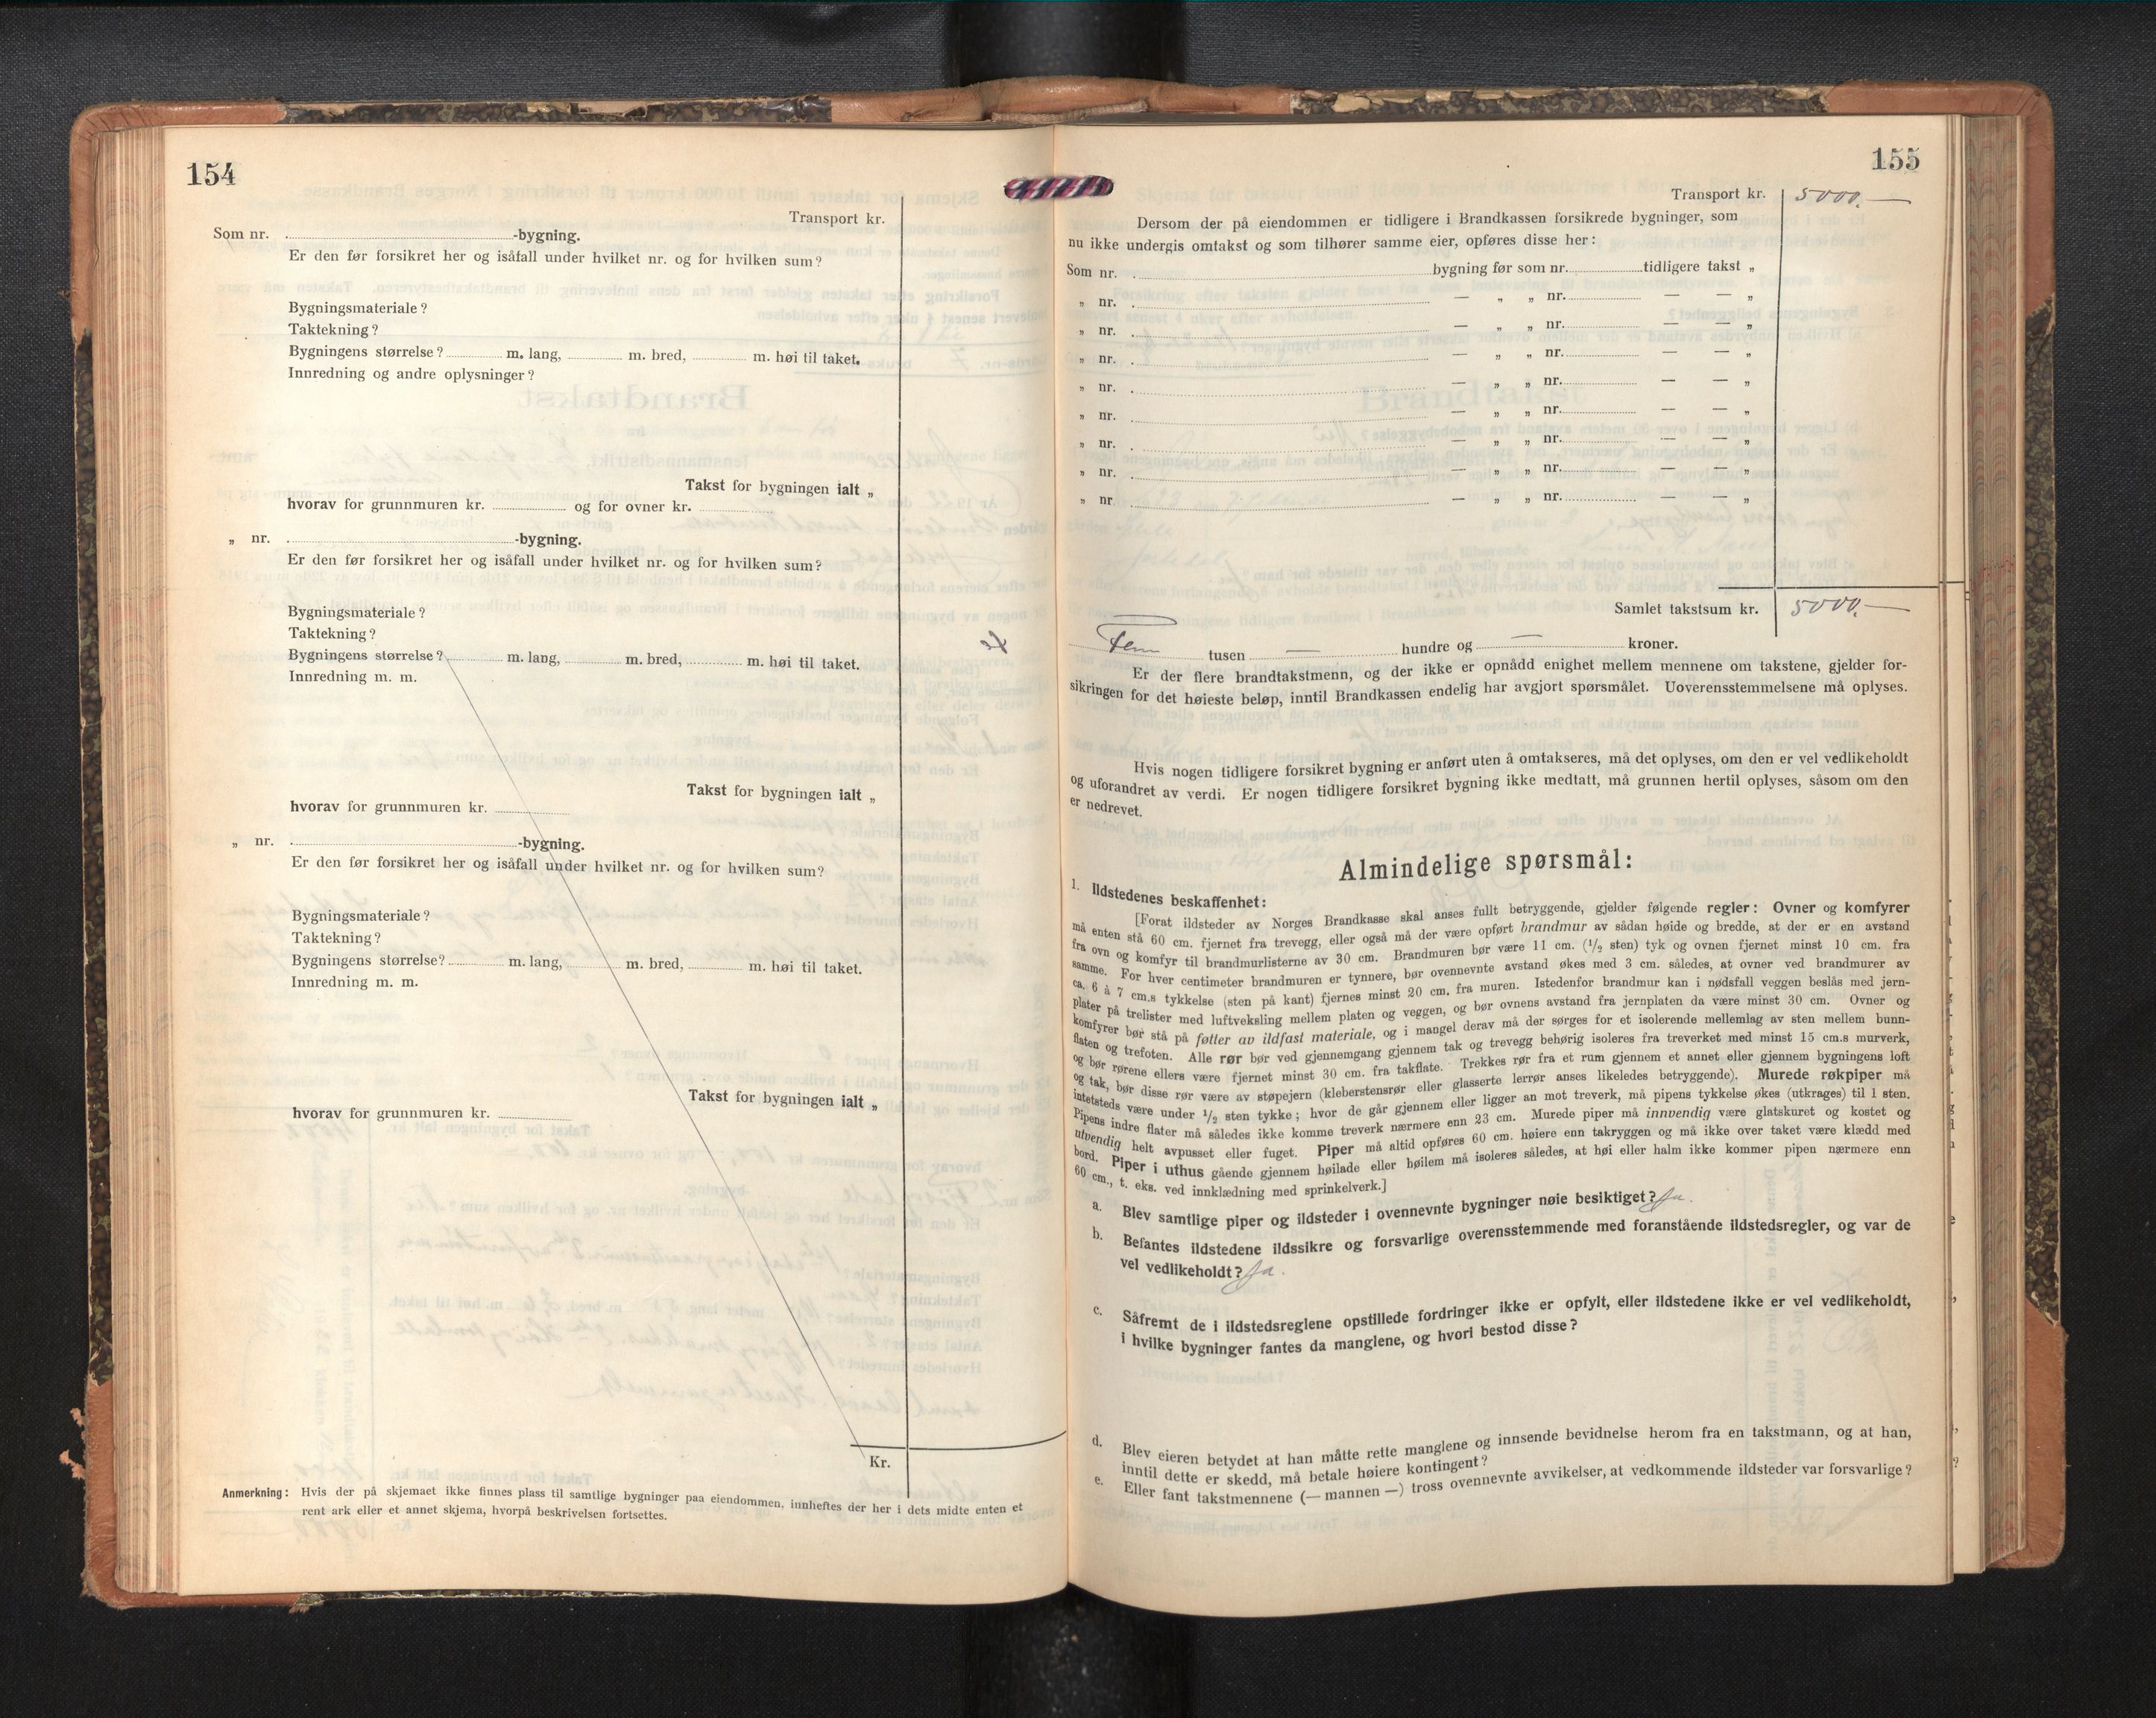 154
Transport kr.
Som nr. -bygning.
Er den før forsikret her og isåfall under hvilket nr. og for hvilken sum?
Bygningsmateriale?
Taktekning?
Bygningens størrelse? m. lang, m. bred, m. høi til taket.
Innredning og andre oplysninger?
Takst for bygningen ialt „
hvorav for grunnmuren kr. og for ovner kr.
„ nr. -bygning.
Er den før forsikret her og isåfall under hvilket nr. og for hvilken sum?
Bygningsmateriale?
Taktekning?
Bygningens størrelse? m. lang, m. bred, m. høi til taket.
Innredning m. m.
Takst for bygningen ialt „
hvorav for grunnmuren kr.
„ nr. -bygning.
Er den før forsikret her og isåfall under hvilket nr. og for hvilken sum?
Bygningsmateriale?
Taktekning?
Bygningens størrelse? m. lang, m. bred, m. høi til taket.
Innredning m. m.
Takst for bygningen ialt „
hvorav for grunnmuren kr.
Kr.
Anmerkning: Hvis der på skjemaet ikke finnes plass til samtlige bygninger paa eiendommen, innheftes der her i dets midte enten et
rent ark eller et annet skjema, hvorpå beskrivelsen fortsettes.
155
Transport kr. 5000.—
Dersom der på eiendommen er tidligere i Brandkassen forsikrede bygninger, som
nu ikke undergis omtakst og som tilhører samme eier, opføres disse her:
Som nr. bygning før som nr. tidligere takst „
„ nr. — „ „ nr. — — „
„ nr. — „ „ nr. — — „
„ nr. — „ „ nr. — — „
„ nr. — „ „ nr. — — „
„ nr. — „ „ nr. — — „
„ nr. — „ „ nr. — — „
„ nr. — „ „ nr. — — „
„ nr — „ „ nr. — — „
Samlet takstsum kr. 5000.—
Fem tusen — hundre og — kroner.
Er der flere brandtakstmenn, og der ikke er opnådd enighet mellem mennene om takstene, gjelder for-
sikringen for det høieste beløp, inntil Brandkassen endelig har avgjort spørsmålet. Uoverensstemmelsene må oplyses.
Hvis nogen tidligere forsikret bygning er anført uten å omtakseres, må det oplyses, om den er vel vedlikeholdt
og uforandret av verdi. Er nogen tidligere forsikret bygning ikke medtatt, må grunnen hertil oplyses, såsom om den
er nedrevet.
Almindelige spørsmål:
1. Ildstedenes beskaffenhet:
[Forat ildsteder av Norges Brandkasse skal anses fullt betryggende, gjelder følgende regler: Ovner og komfyrer
må enten stå 60 cm. fjernet fra trevegg, eller også må der være opført brandmur av sådan høide og bredde, at der er en avstand
fra ovn og komfyr til brandmurlisterne av 30 cm. Brandmuren bør være 11 cm. (1/2 sten) tyk og ovnen fjernet minst 10 cm. fra
samme. For hver centimeter brandmuren er tynnere, bør ovennevnte avstand økes med 3 cm. således, at ovner ved brandmurer av
ca. 6 à 7 cm.s tykkelse (sten på kant) fjernes minst 20 cm. fra muren. Istedenfor brandmur kan i nødsfall veggen beslås med jern-
plater på trelister med luftveksling mellem platen og veggen, og bør ovnens avstand fra jernplaten da være minst 30 cm. Ovner og
komfyrer bør stå på føtter av ildfast materiale, og i mangel derav må der sørges for et isolerende mellemlag av sten mellem bunn-
flaten og trefoten. Alle rør bør ved gjennemgang gjennem tak og trevegg behørig isoleres fra treverket med minst 15 cm.s murverk,
og bør rørene ellers være fjernet minst 30 cm. fra takflate. Trekkes rør fra et rum gjennem et annet eller gjennem bygningens loft
og tak, bør disse rør være av støpejern (kleberstensrør eller glasserte lerrør anses likeledes betryggende). Murede røkpiper må
intetsteds være under 1/2 sten tykke; hvor de går gjennem eller ligger an mot treverk, må pipens tykkelse økes (utkrages) til 1 sten.
Pipens indre flater må således ikke komme treverk nærmere enn 23 cm. Murede piper må innvendig være glatskuret og kostet og
utvendig helt avpusset eller fuget. Piper må altid opføres 60 cm. høiere enn takryggen og må ikke over taket være klædd med
bord. Piper i uthus gående gjennem høilade eller høilem må isoleres således, at høi eller halm ikke kommer pipen nærmere enn
60 cm., t. eks. ved innklædning med sprinkelverk.]
a. Blev samtlige piper og ildsteder i ovennevnte bygninger nøie besiktiget? Ja.
b. Befantes ildstedene ildssikre og forsvarlige overensstemmende med foranstående ildstedsregler, og var de
vel vedlikeholdt? Ja.
c. Såfremt de i ildstedsreglene opstillede fordringer ikke er opfylt, eller ildstedene ikke er vel vedlikeholdt,
i hvilke bygninger fantes da manglene, og hvori bestod disse?
d. Blev eieren betydet at han måtte rette manglene og innsende bevidnelse herom fra en takstmann, og at han,
inntil dette er skedd, må betale høiere kontingent?
e. Eller fant takstmennene (— mannen —) tross ovennevnte avvikelser, at vedkommende ildsteder var forsvarlige?